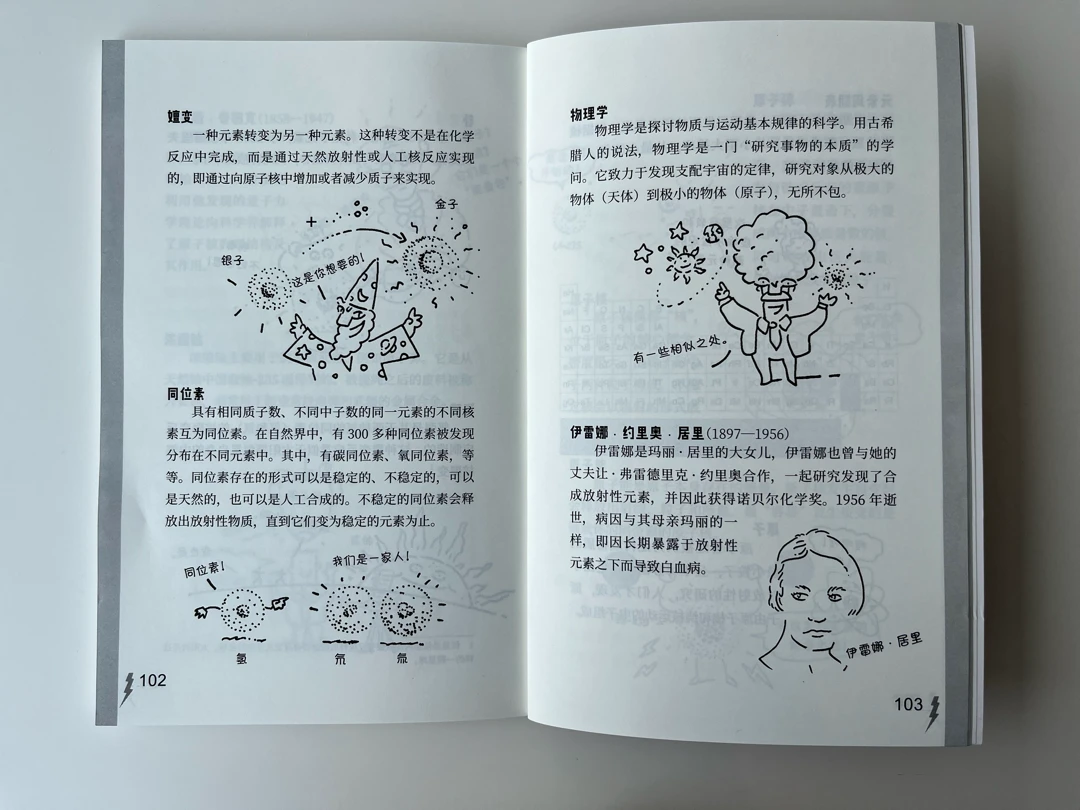 嬗变
一种元素转变为另一种元素。这种转变不是在化学
反应中完成，而是通过天然放射性或人工核反应实现
的，即通过向原子核中增加或者减少质子来实现。
金子
银子
这是你想要的！
同位素
具有相同质子数、不同中子数的同一元素的不同核
素互为同位素。在自然界中，有 300 多种同位素被发现
分布在不同元素中。其中，有碳同位素、氧同位素，等
等。同位素存在的形式可以是稳定的、不稳定的，可以
是天然的，也可以是人工合成的。不稳定的同位素会释
放出放射性物质，直到它们变为稳定的元素为止。
同位素！
我们是一家人！
氢
氘
氚
102
物理学
物理学是探讨物质与运动基本规律的科学。用古希
腊人的说法，物理学是一门“研究事物的本质”的学
问。它致力于发现支配宇宙的定律，研究对象从极大的
物体（天体）到极小的物体（原子），无所不包。
有一些相似之处。
伊雷娜·约里奥·居里(1897—1956)
伊雷娜是玛丽·居里的大女儿，伊雷娜也曾与她的
丈夫让·弗雷德里克·约里奥合作，一起研究发现了合
成放射性元素，并因此获得诺贝尔化学奖。1956 年逝
世，病因与其母亲玛丽的一
样，即因长期暴露于放射性
元素之下而导致白血病。
伊雷娜·居里
103